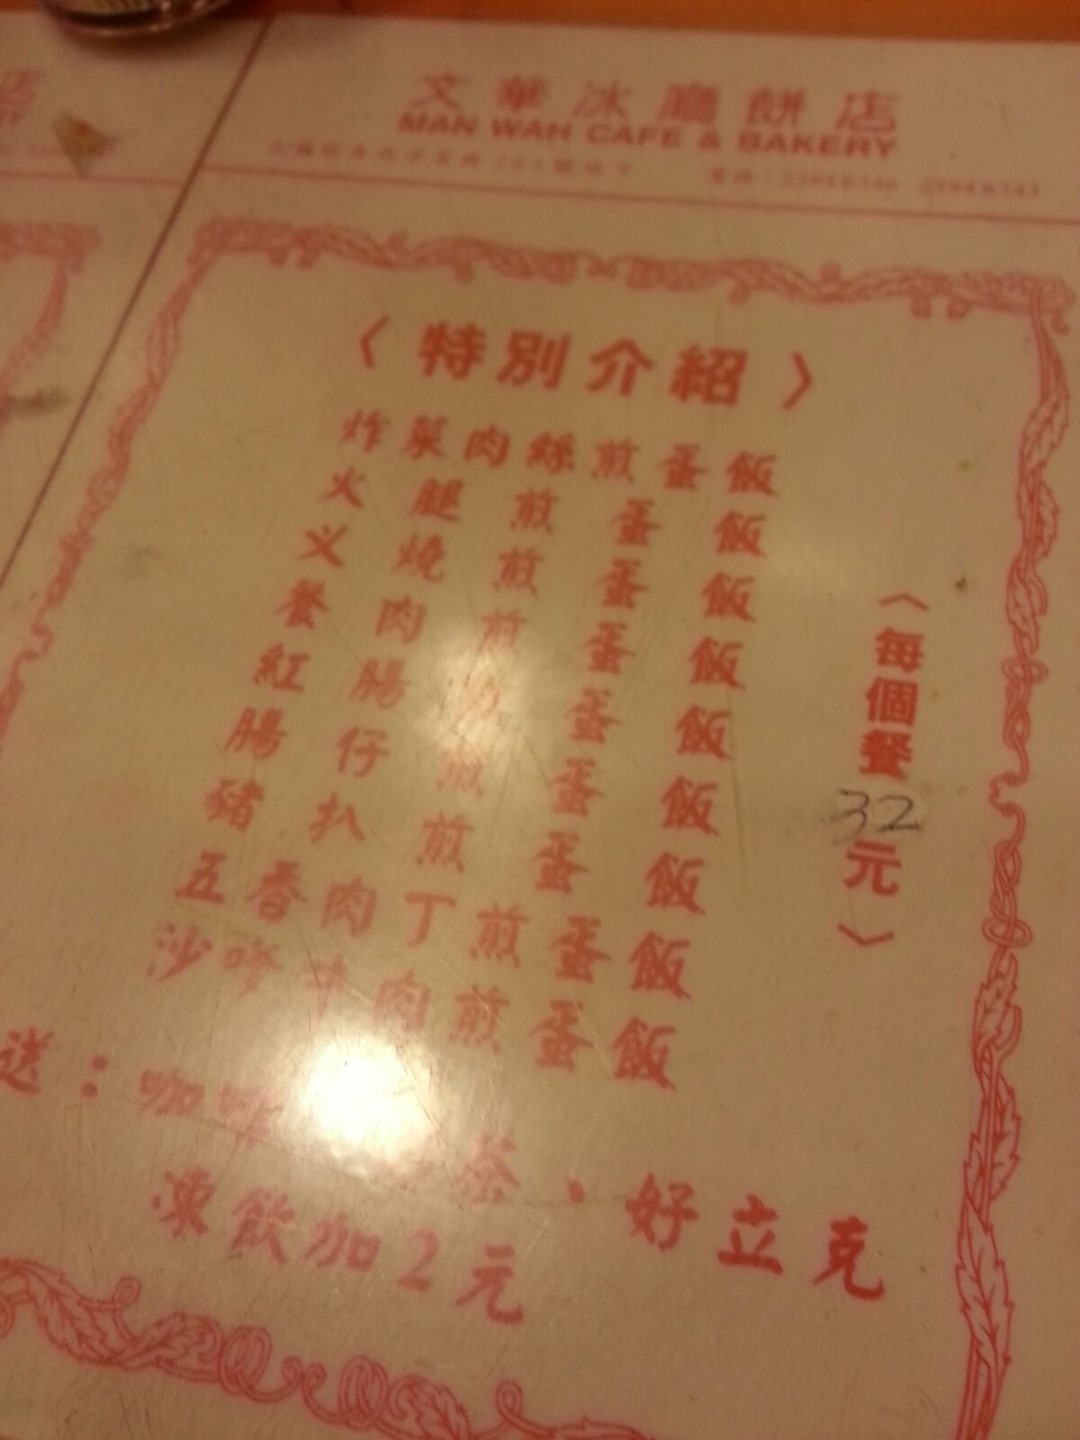 文華冰廳餅店
MAN WAH CAFE & BAKERY
〈特別介紹〉
炸菜肉絲煎蛋飯
火腿煎蛋飯
义燒煎蛋飯
餐肉煎蛋飯
紅腸煎蛋飯
腸仔煎蛋飯
豬扒煎蛋飯
五香肉丁煎蛋飯
沙嗲牛肉煎蛋飯
〈每個餐32元〉
送：咖啡 茶、好立克
凍飲加2元